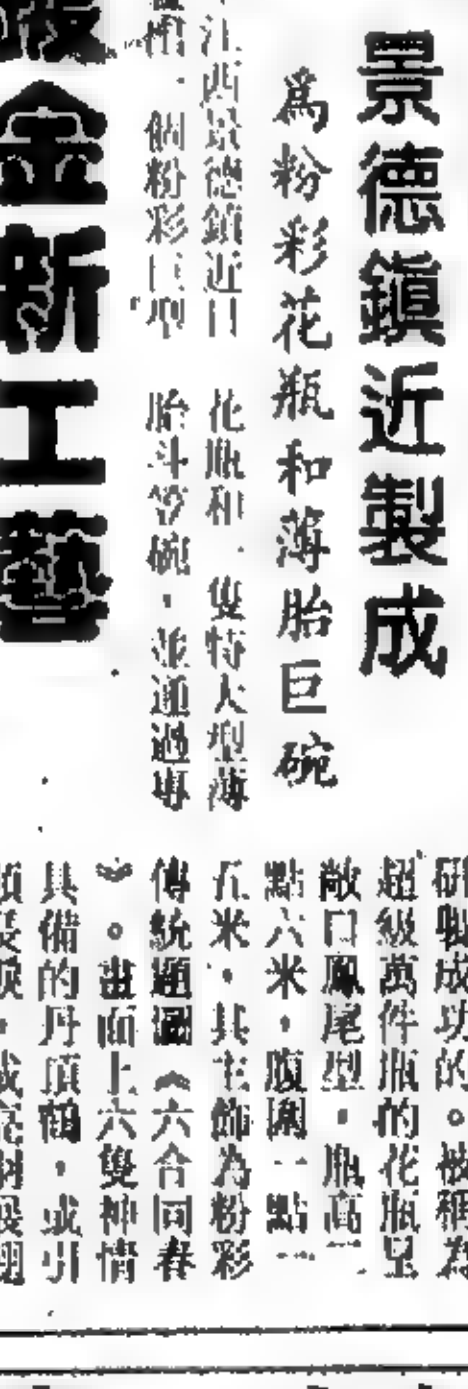 景德鎮近製成
為粉彩花瓶和薄胎巨碗
江西景德鎮近日
個粉彩巨型
花瓶和一隻特大型薄
胎斗笠碗，並通過專
研製成功的。被稱為
超級萬件瓶的花瓶呈
敞口鳳尾型，瓶高二
點六米，腹圍一點一
五米，其主飾為粉彩
傳統題圖《六合同春
》。畫面上六隻神情
具備的丹頂鶴，或引
金新工藝